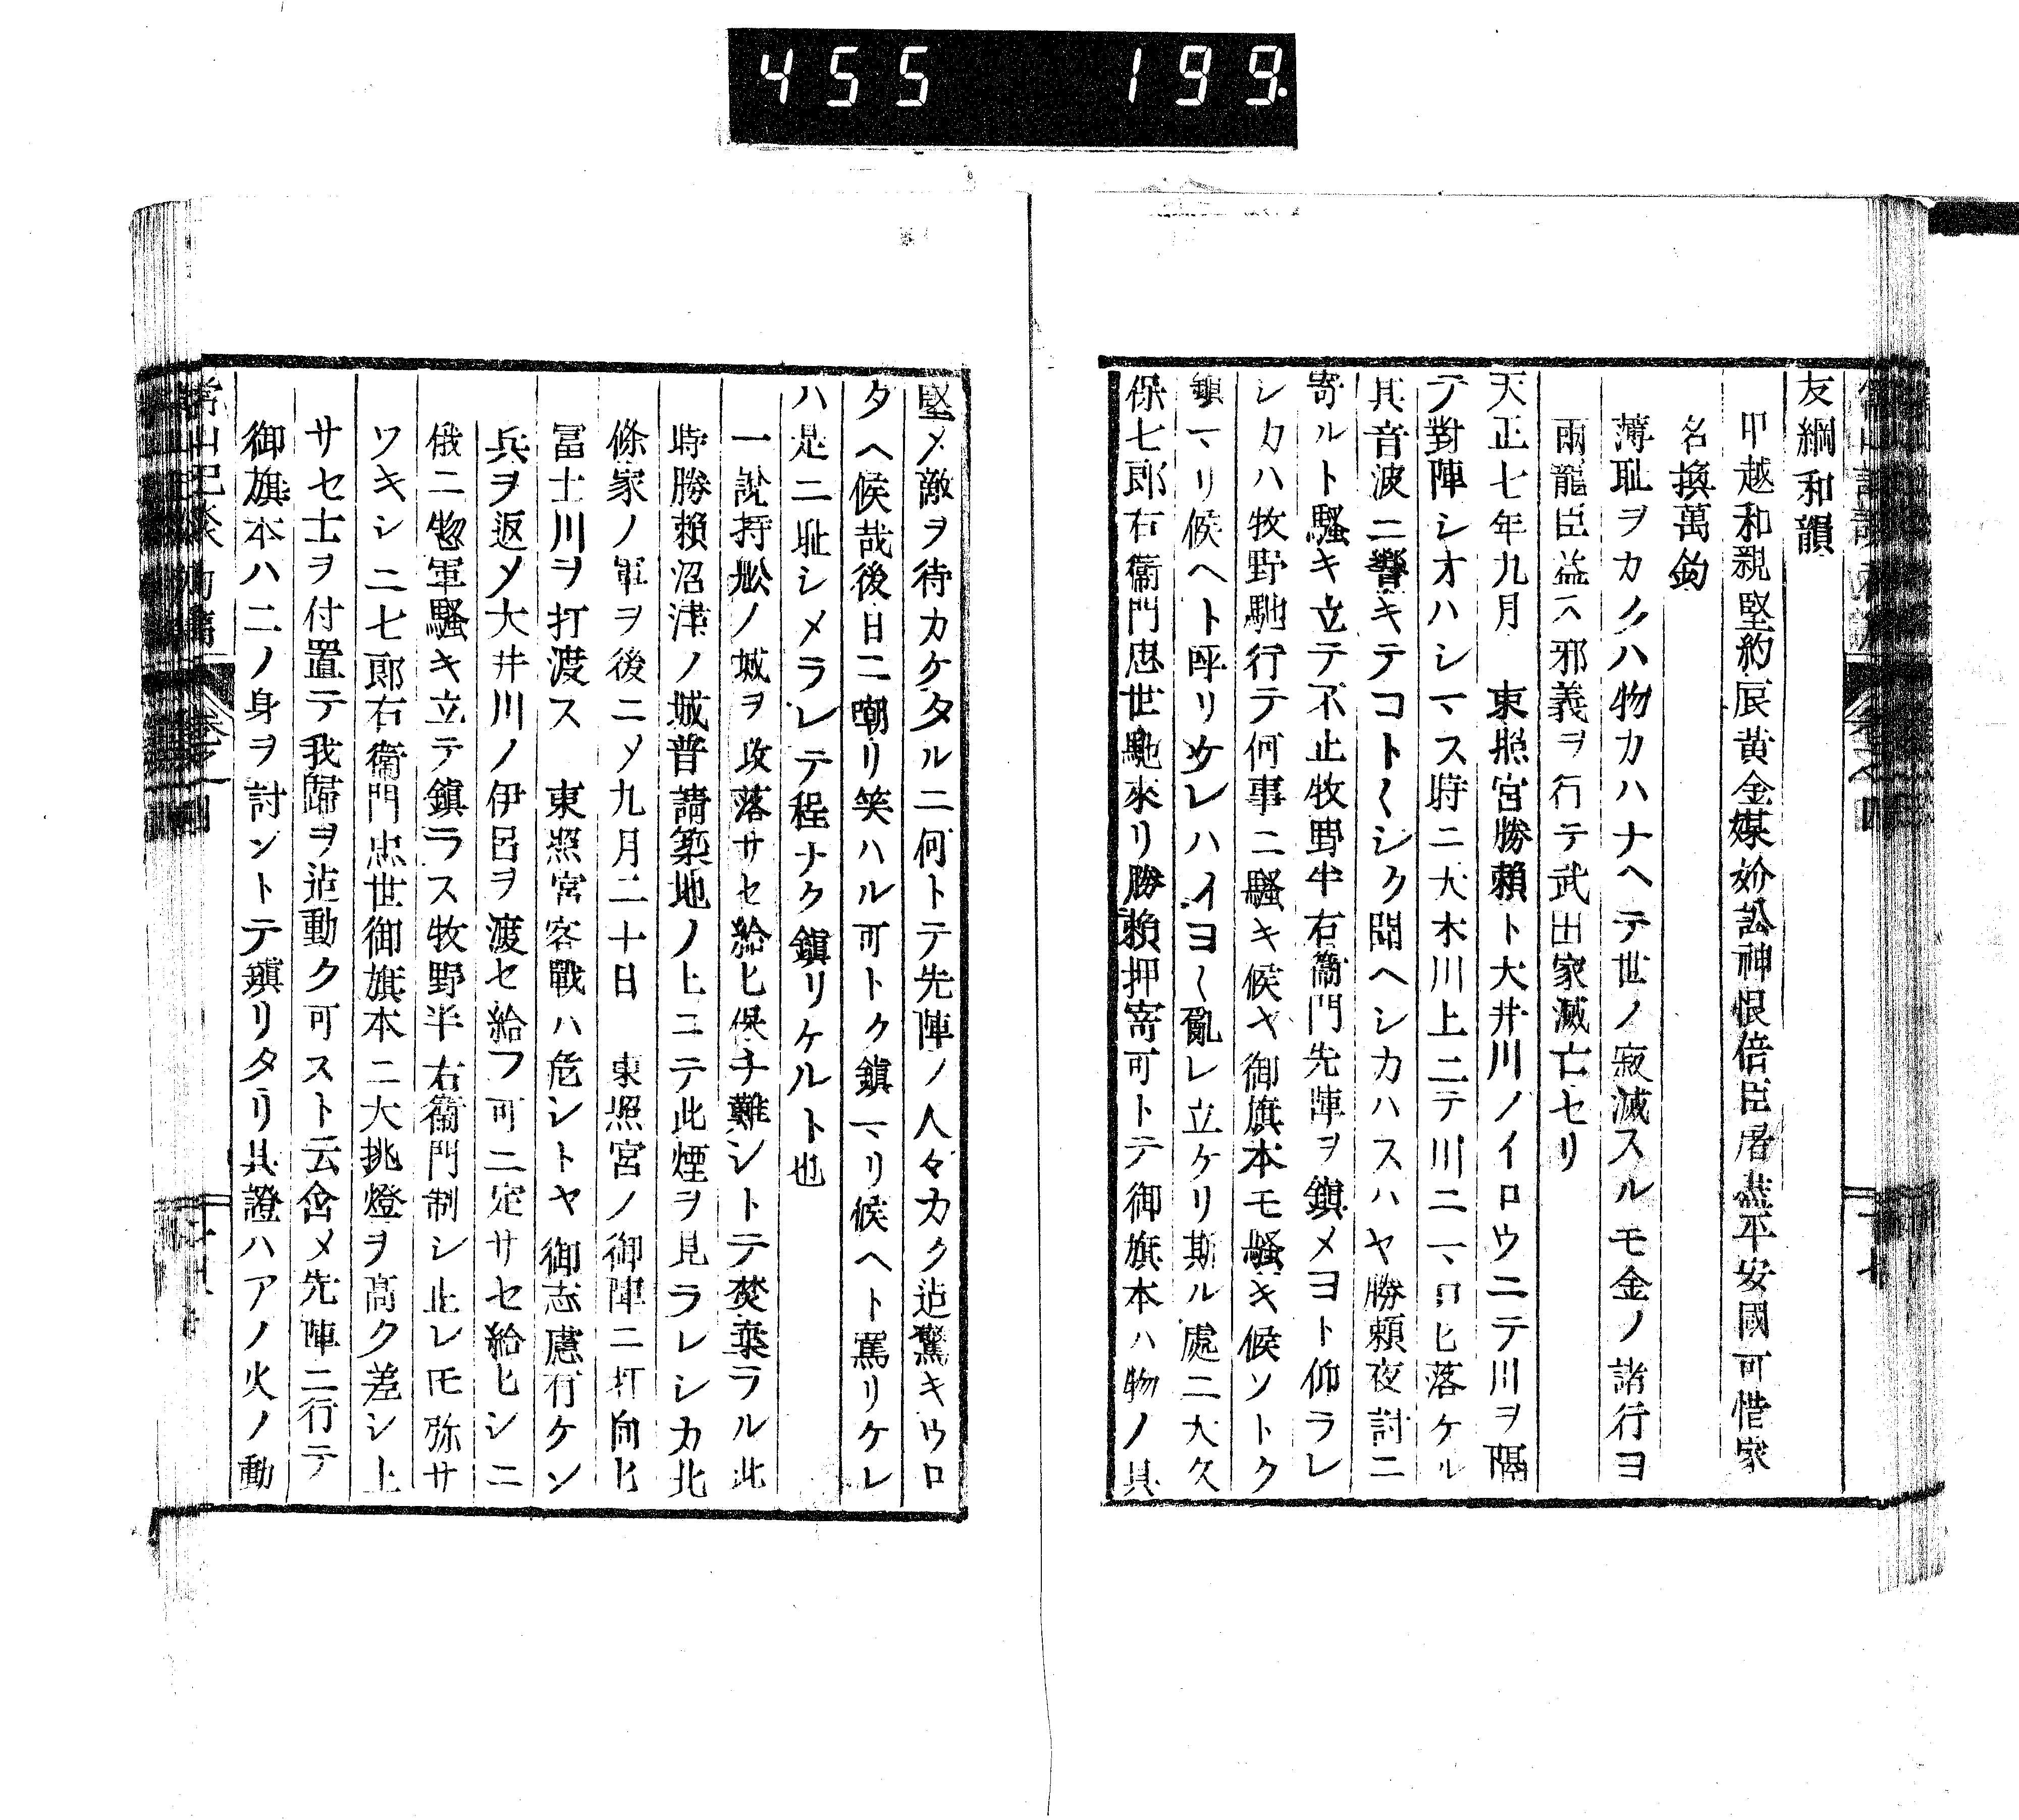 455 199.
友綱和韻
甲越和親堅約辰黄金媒妁訟神恨倍臣屠盡平安國可惜家
名換萬鈞
薄耻ヲカクハ物カハナヘテ世ノ寂滅スルモ金ノ諸行ヨ
兩寵臣益ヘ邪義ヲ行テ武田家滅亡セリ
天正七年九月 東照宮勝頼ト大井川ノイロウニテ川ヲ隔
テ對陣シオハシマス時ニ大木川上ニテ川ニマロヒ落ケル
其音波ニ響キテコト〱シク聞ヘシカハスハヤ勝頼夜討ニ
寄ルト騒キ立テ不止牧野半右衞門先陣ヲ鎭メヨト仰ラレ
シカハ牧野馳行テ何事ニ騒キ候ヤ御旗本モ騒キ候ソトク
鎭マリ候ヘト呼リケレハイヨ〱亂レ立ケリ斯ル處ニ大久
保七郎右衞門忠世馳來リ勝頼押寄可トテ御旗本ハ物ノ具
堅メ敵ヲ待カケタルニ何トテ先陣ノ人々カク迯驚キウロ
タヘ候哉後日ニ嘲リ笑ハル可トク鎭マリ候ヘト罵リケレ
ハ是ニ耻シメラレテ程ナク鎭リケルト也
一說持舩ノ城ヲ攻落サセ給ヒ保チ難シトテ焚棄ラル此
時勝頼沼津ノ城普請築地ノ上ニテ此煙ヲ見ラレシカ北
條家ノ軍ヲ後ニメ九月二十日 東照宮ノ御陣ニ打向ヒ
冨士川ヲ打渡ス 東照宮客戰ハ危シトヤ御志慮有ケン
兵ヲ返メ大井川ノ伊呂ヲ渡セ給フ可ニ定サセ給ヒシニ
俄ニ惣軍騒キ立テ鎭ラス牧野半右衞門制シ止レモ弥サ
ワキシニ七郎右衞門忠世御旗本ニ大挑燈ヲ高ク差シ上
サセ士ヲ付置テ我歸ヲ迯動ク可ストム含メ先陣ニ行テ
御旗本ハ二ノ身ヲ討ントテ鎭リタリ其證ハアノ火ノ動